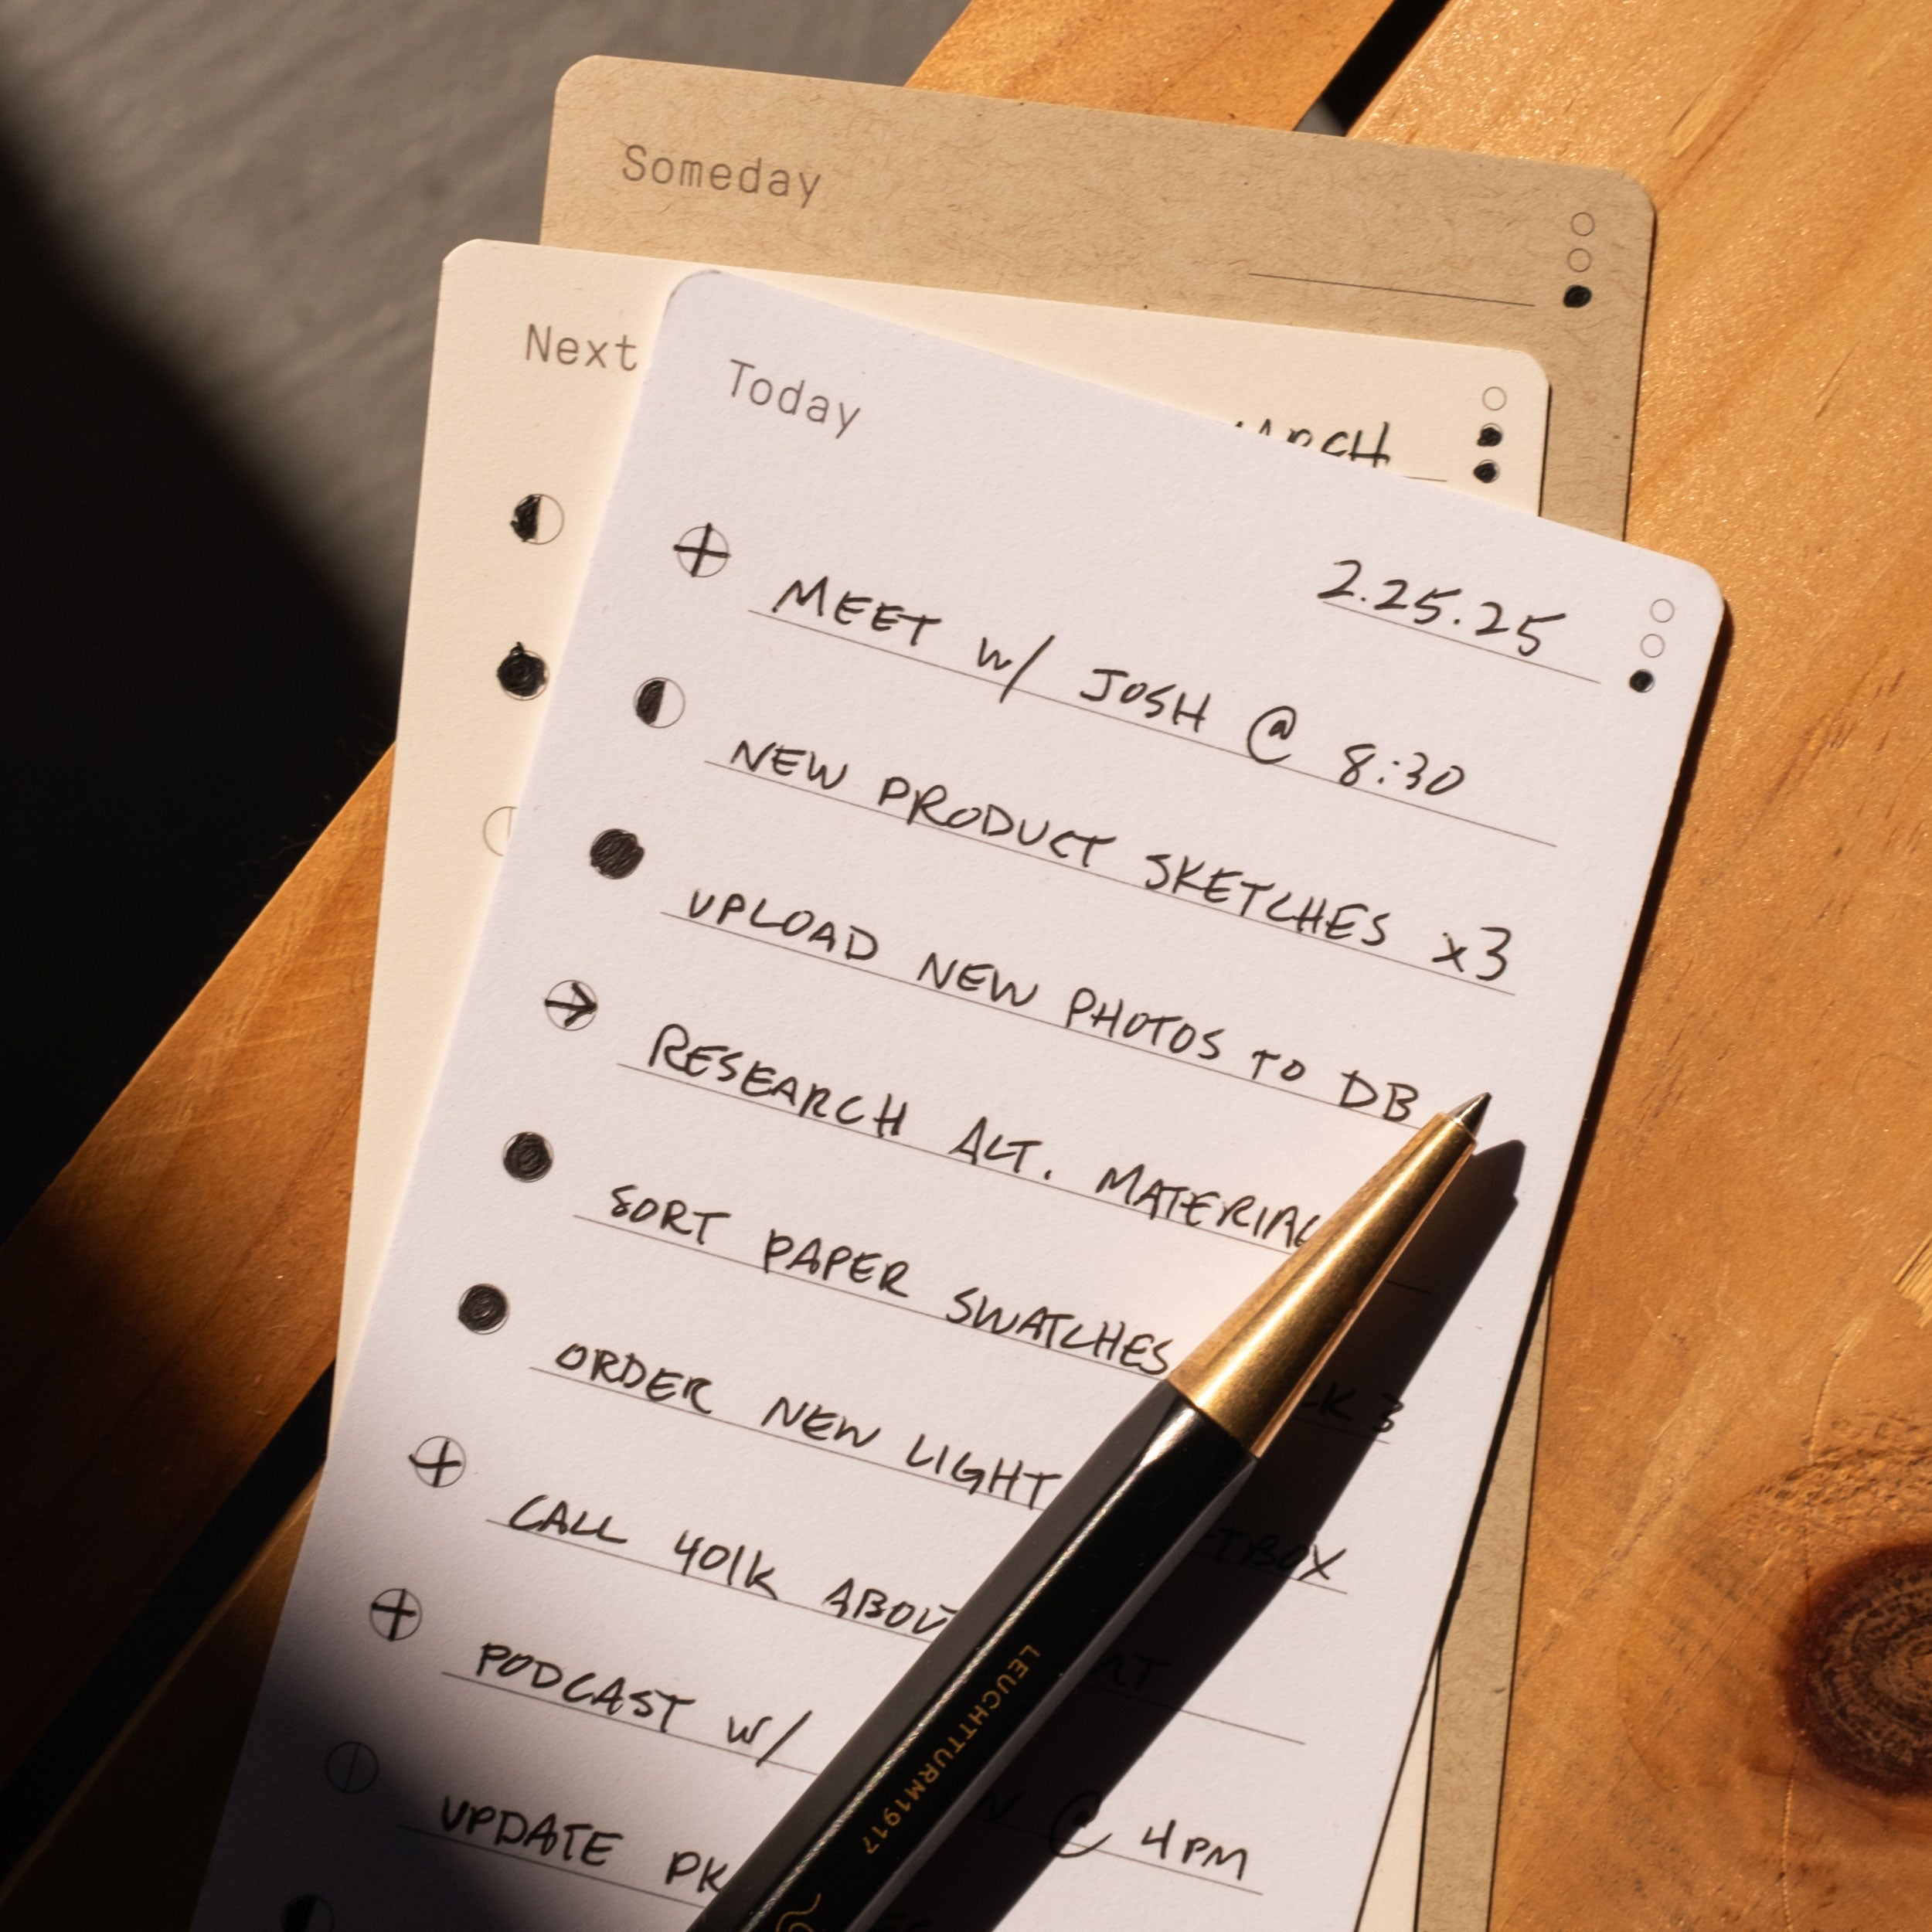 Someday
Next
Today
2.25.25
MEET w/ JOSH @ 8:30
NEW PRODUCT SKETCHES x3
UPLOAD NEW PHOTOS TO DB
RESEARCH ALT. MATERIAL
SORT PAPER SWATCHES 3
ORDER NEW LIGHT
CALL 401K
PODCAST w/ @ 4PM
UPDATE
LEUCHTTURM1917